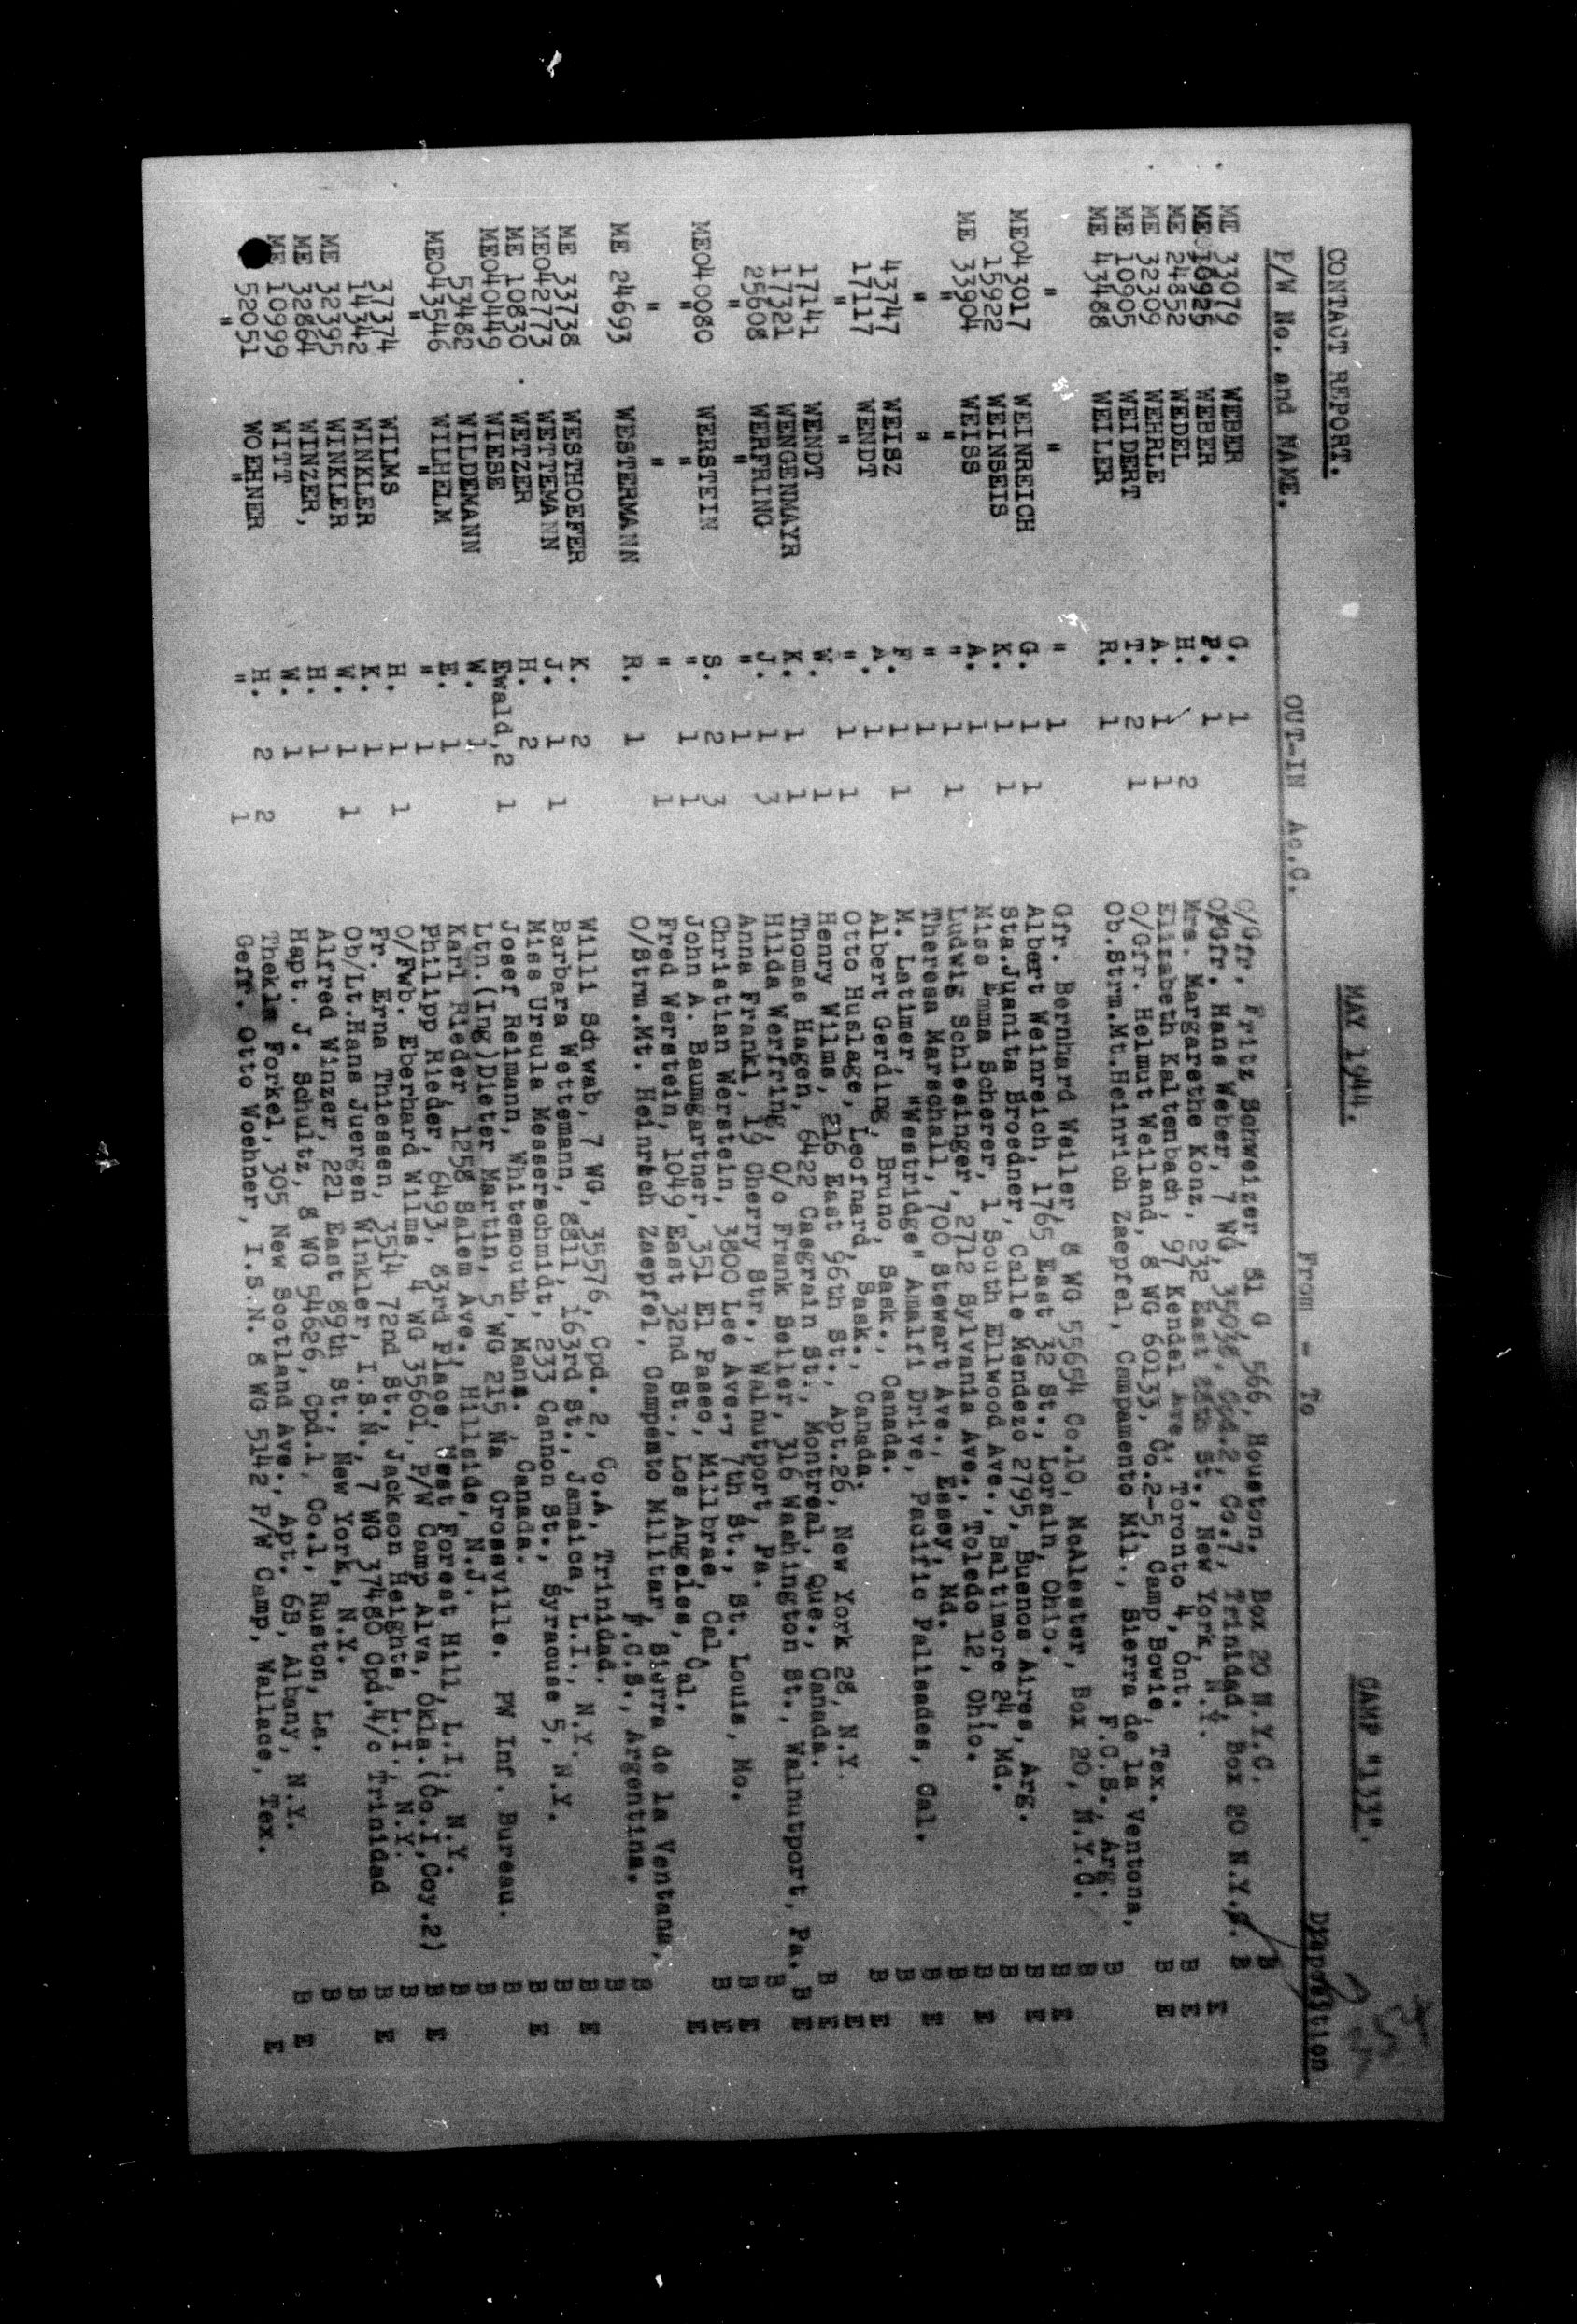 CONTACT REPORT. MAY 1944. CAMP "133".
P/W No. and NAME. OUT-IN Ac.C. From - To Disposition
ME 33079 WEBER G. 1 O/Gfr. Fritz Schweizer, 81 G, 566, Houston. Box 20 N.Y.C. B
ME 10925 WEBER P. 1 O/Gfr. Hans Weber, 7 WG, Cpd.2, Co.7, Trinidad, Box 20 N.Y. B
ME 24852 WEDEL H. 2 Mrs. Margarethe Konz, 232 East St., New York, N.Y. E
ME 32309 WEHRLE A. 1 1 Elizabeth Kaltenbach, 97 Kendel Ave., Toronto 4, Ont. B E
ME 10905 WEIDERT T. 2 1 O/Gfr. Helmut Weiland, 8 WG 60133, Co.2-5, Camp Bowie, Tex. B E
ME 43488 WEILER R. 1 Ob.Strm.Mt.Heinrich Zaepfel, Campamento Mil., Sierra de la Ventona,
F.C.S., Arg. B
" " " 1 Gfr. Bernhard Weiler, 8 WG 55654 Co.10, McAlester, Box 20, N.Y.C. B
ME043017 WEINREICH G. 1 1 Albert Weinreich, 1765 East 32 St., Lorain, Ohio. B E
15922 WEINSEIS K. 1 1 Sta.Juanita Broedner, Calle Mendezo 2795, Buenos Aires, Arg. B E
ME 33904 WEISS A. 1 Miss Emma Scherer, 1 South Ellwood Ave., Baltimore 24, Md. B
" " " 1 1 Ludwig Schlesinger, 2712 Sylvania Ave., Toledo 12, Ohio. B E
" " " 1 Theresa Marschall, 700 Stewart Ave., Essey, Md. B
43747 WEISZ F. 1 1 M. Latimer, "Westridge" Amalfi Drive, Pacific Palisades, Cal. B E
17117 WENDT A. 1 Albert Gerding, Bruno, Sask., Canada. B
" " " 1 1 Otto Huslage, Leofnard, Sask., Canada. B E
17141 WENDT W. 1 Henry Wilms, 216 East 96th St., Apt.26, New York 28, N.Y. E
17321 WENGENMAYR K. 1 1 Thomas Hagen, 6422 Casgrain St., Montreal, Que., Canada. B E
25608 WERFRING J. 1 3 Hilda Werfring, C/o Frank Seiler, 316 Washington St., Walnutport, Pa. B E
" " " 1 Anna Frankl, 19 Cherry Str., Walnutport, Pa. B
ME040080 WERSTEIN S. 2 3 Christian Werstein, 3800 Lee Ave.7 7th St., St. Louis, Mo. B E
" " " 1 1 John A. Baumgartner, 351 El Paseo, Millbrae, Cal. B E
" " " 1 Fred Werstein, 1049 East 32nd St., Los Angeles, Cal. E
ME 24693 WESTERMANN R. 1 O/Strm.Mt. Heinrich Zaepfel, Campesto Militar, Sierra de la Ventana,
F.C.S., Argentina. B
ME 33738 WESTHOEFER K. 2 Willi Schwab, 7 WG, 35576, Cpd. 2, Co.A, Trinidad. B
ME042773 WETTEMANN J. 1 1 Barbara Wettemann, 8811, 163rd St., Jamaica, L.I., N.Y. B E
ME 10830 WETZER H. 2 Miss Ursula Messerschmidt, 233 Cannon St., Syracuse 5, N.Y. B
ME040449 WIESE Ewald, 2 1 Josef Reimann, Whitemouth, Man., Canada. B E
53482 WILDEMANN W. 1 Ltn.(Ing)Dieter Martin, 5 WG 215 Na Crossville. PW Inf. Bureau. B
ME043546 WILHELM E. 1 Karl Rieder, 1258 Salem Ave., Hillside, N.J. B
" " " 1 Philipp Rieder, 6493, 83rd Place, West Forest Hill, L.I., N.Y. B
37374 WILMS H. 1 1 O/Fwb. Eberhard Wilms, 4 WG 35601, P/W Camp Alva, Okla.(Co.I,Coy.2) B E
14342 WINKLER K. 1 Fr. Erna Thiessen, 3514 72nd St., Jackson Heights, L.I., N.Y. B
ME 32395 WINKLER W. 1 1 Ob/Lt.Hans Juergen Winkler, I.S.N., 7 WG 37480 Cpd.4/c Trinidad B E
ME 32864 WINZER, H. 1 Alfred Winzer, 221 East 89th St., New York, N.Y. B
ME 10999 WITT W. 1 Hapt. J. Schultz, 8 WG 54626, Cpd.1, Co.1, Ruston, La. B
52051 WOEHNER H. 2 2 Thekla Forkel, 305 New Scotland Ave., Apt. 6B, Albany, N.Y. B E
" " " 1 Gefr. Otto Woehner, I.S.N. 8 WG 5142 P/W Camp, Wallace, Tex. E